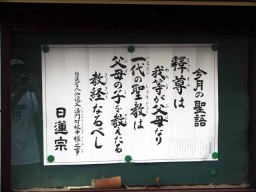 今月の聖語
釋尊は
我等が父母なり
一代の聖教は
父母の子を教えたる
教経なるべし
日蓮宗